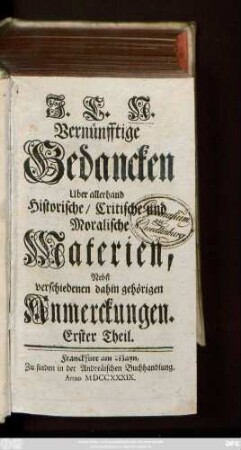 J. C. N.
Vernünfftige
Gedancken
Uber allerhand
Historische/ Critische und
Moralische
Materien,
Nebst
verschiedenen dahin gehörigen
Anmerckungen.
Erster Theil.
Franckfurt am Mayn,
Zu finden in der Andreäischen Buchhandlung.
Anno MDCCXXXIX.